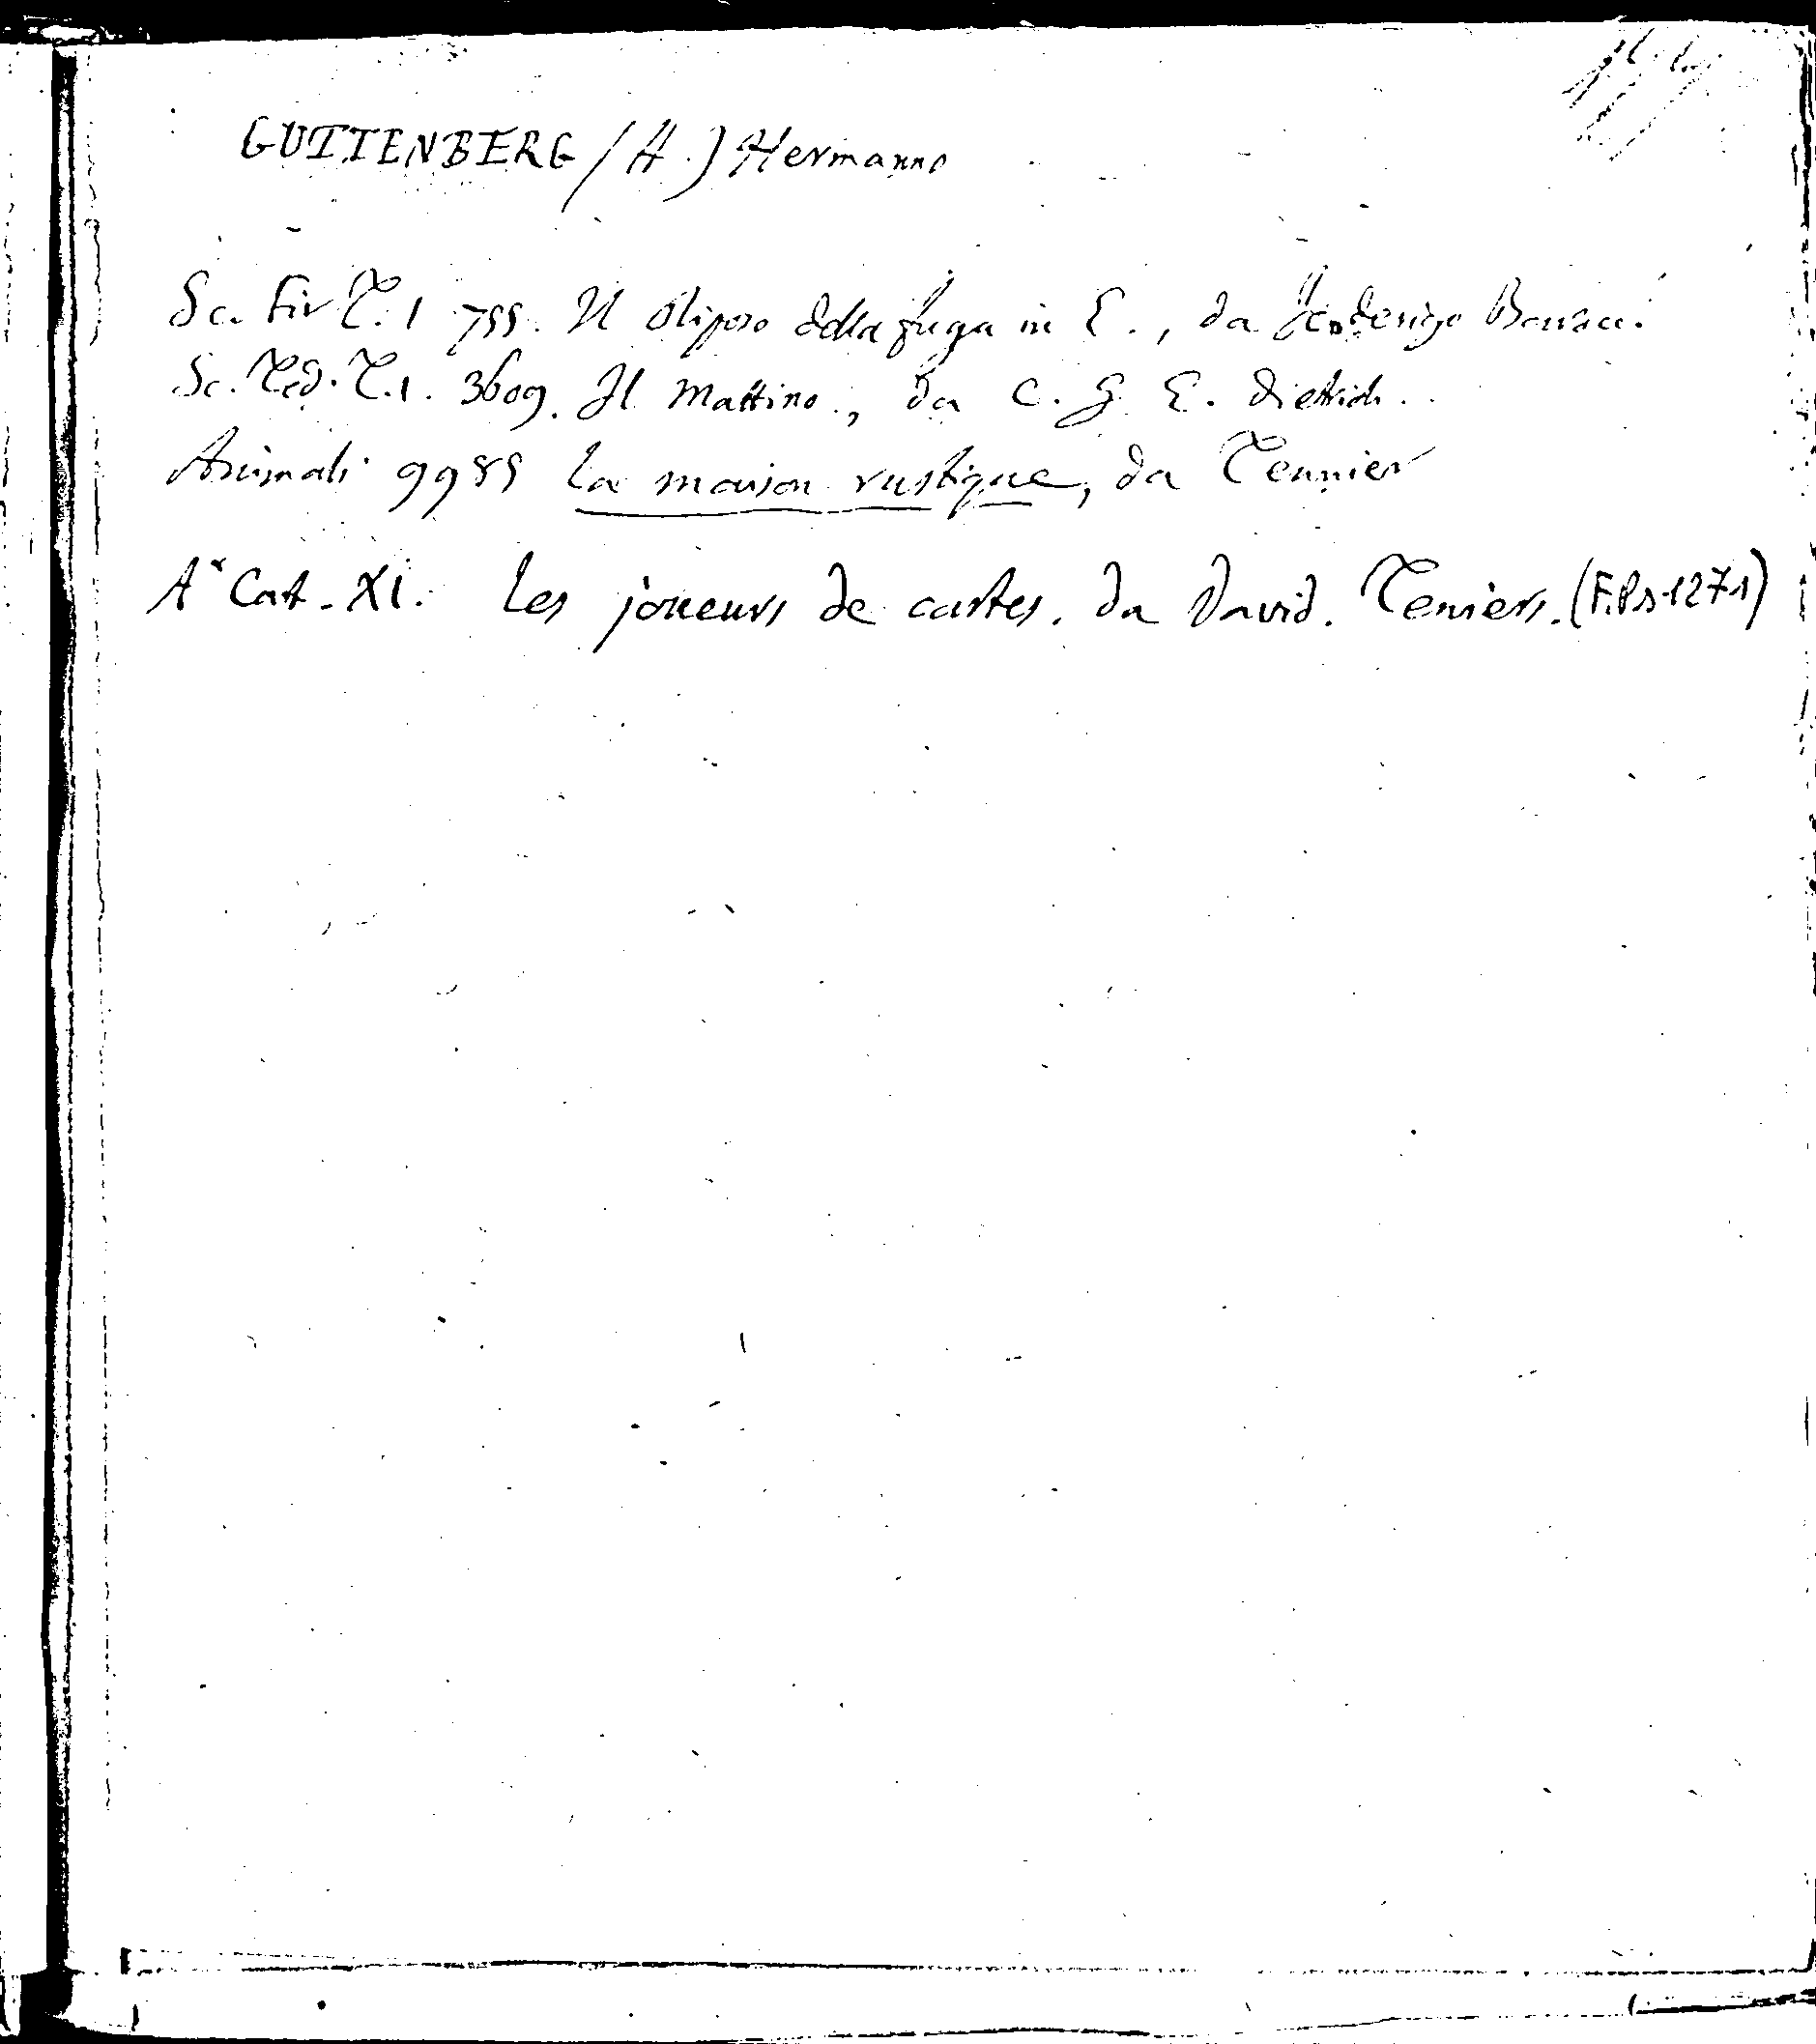 GUTTENBERG (H.) Hermanno
Sc. Fir T. 1 755. Il Riposo della fuga in E., da Federigo
Sc. Ted. T. 1. 3609. Il Mattino, da C. G. E. Dietrich.
Animali 9985 La maison rustique, da Tennier
A* Cat. XI. Les joueurs de cartes. da David. Teniers. (F.P.s.1271)